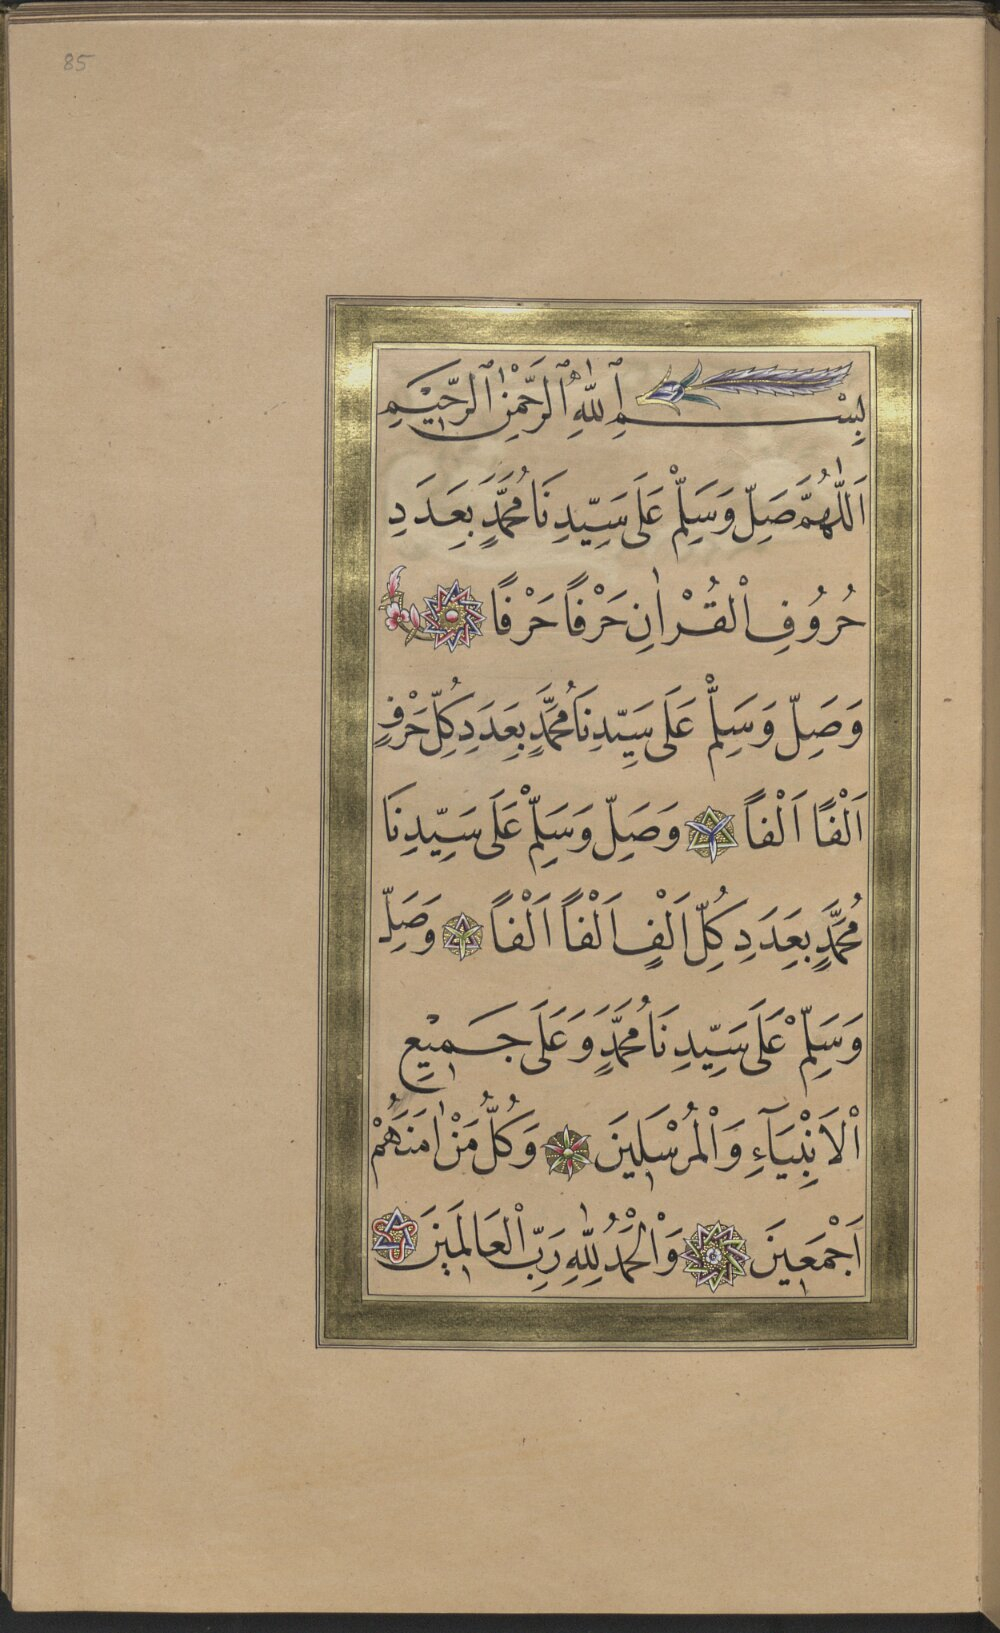 85
بِسْمِ ٱللّٰهِ ٱلرَّحْمٰنِ ٱلرَّحِيمِ
اَللّٰهُمَّ صَلِّ وَسَلِّمْ عَلَى سَيِّدِنَا مُحَمَّدٍ بِعَدَدِ
حُرُوُفِ الْقُرْاٰنِ حَرْفًا حَرْفًا
وَصَلِّ وَسَلِّمْ عَلَى سَيِّدِنَا مُحَمَّدٍ بِعَدَدِ كُلِّ حَرْفٍ
اَلْفًا اَلْفاً وَصَلِّ وَسَلِّمْ عَلَى سَيِّدِنَا
مُحَمَّدٍ بِعَدَدِ كُلِّ اَلْفٍ اَلْفاً اَلْفاً وَصَلِّ
وَسَلِّمْ عَلَى سَيِّدِنَا مُحَمَّدٍ وَعَلَى جَمِيْعِ
اْلاَنِبْيَآءِ وَالْمُرْسَلِينَ وَكُلُّ مَنْ اٰمَنَهُمْ
اَجْمَعِينَ وَالْحَمْدُ لِلّٰهِ رَبِّ الْعَالَمِينَ